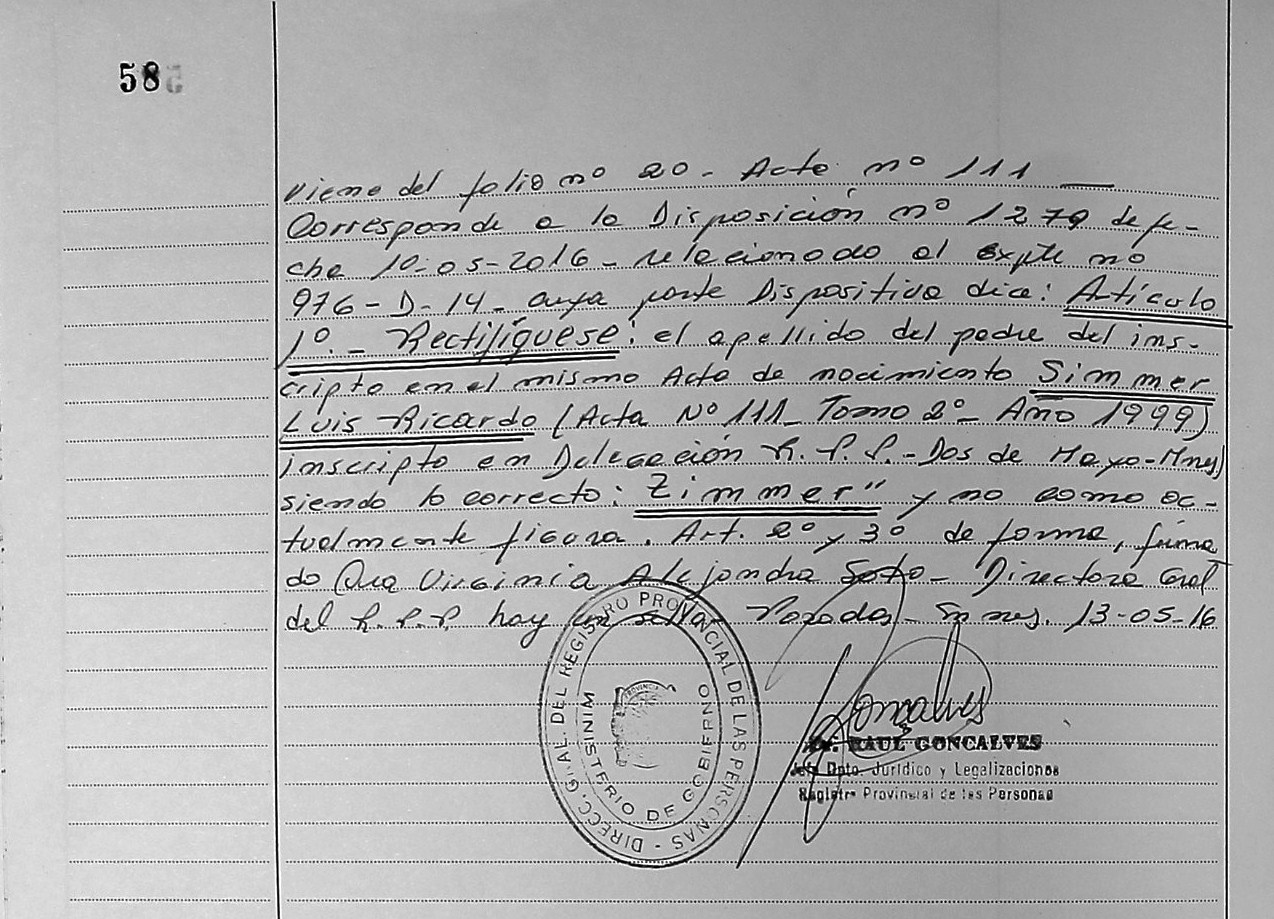 58
Viene del folio nº 20 - Acta nº 111
Corresponde a la Disposición nº 1279 de fe-
cha 10-05-2016 - relacionado al expte nº
976 - D - 14 - cuya parte Dispositiva dice: Artículo
1º. - Rectifíquese: el apellido del padre del ins-
cripto en el mismo Acta de nacimiento Simmer
Luis Ricardo (Acta Nº 111 - Tomo 2º - Año 1999)
inscripto en Delegación R.P.P. - Dos de Mayo - Mnes)
siendo lo correcto: Zimmer" y no como ac-
tualmente figura. Art. 2º y 3º de forma, firma
do Dra Virginia Alejandra Soto - Directora Gral
del R.P.P hay un sello. Posadas - Mnes. 13-05-16
DIRECC. GRAL. DEL REGISTRO PROVINCIAL DE LAS PERSONAS -
MINISTERIO DE GOBIERNO
PROVINCIA
Goncalves
Dr. RAUL GONCALVES
Jefe Dpto. Jurídico y Legalizaciones
Registro Provincial de las Personas